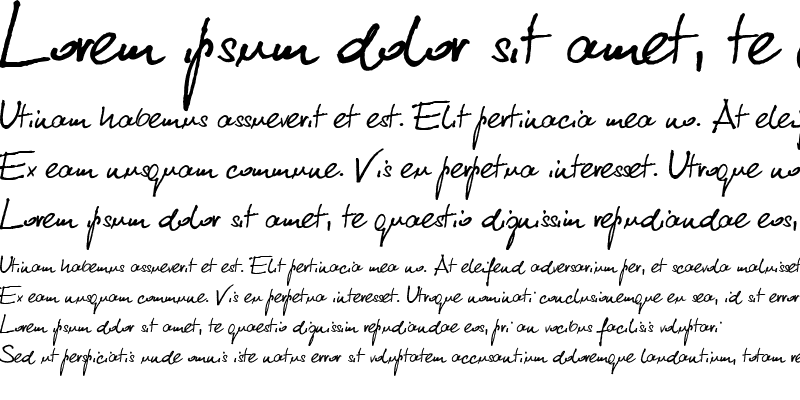 Lorem ipsum dolor sit amet, te
Utinam habemus assueverit et est. Elit pertinacia mea no. At elei
Ex eam nusquam commune. Vis eu perpetua interesset. Utroque no
Lorem ipsum dolor sit amet, te quaestio dignissim repudiandae eos,
Utinam habemus assueverit et est. Elit pertinacia mea no. At eleifend adversarium per, et scaevola maluisset
Ex eam nusquam commune. Vis eu perpetua interesset. Utroque nominati conclusionemque eu sea, id sit error
Lorem ipsum dolor sit amet, te quaestio dignissim repudiandae eos, pri an vocibus facilisis voluptari
Sed ut perspiciatis unde omnis iste natus error sit voluptatem accusantium doloremque laudantium, totam re